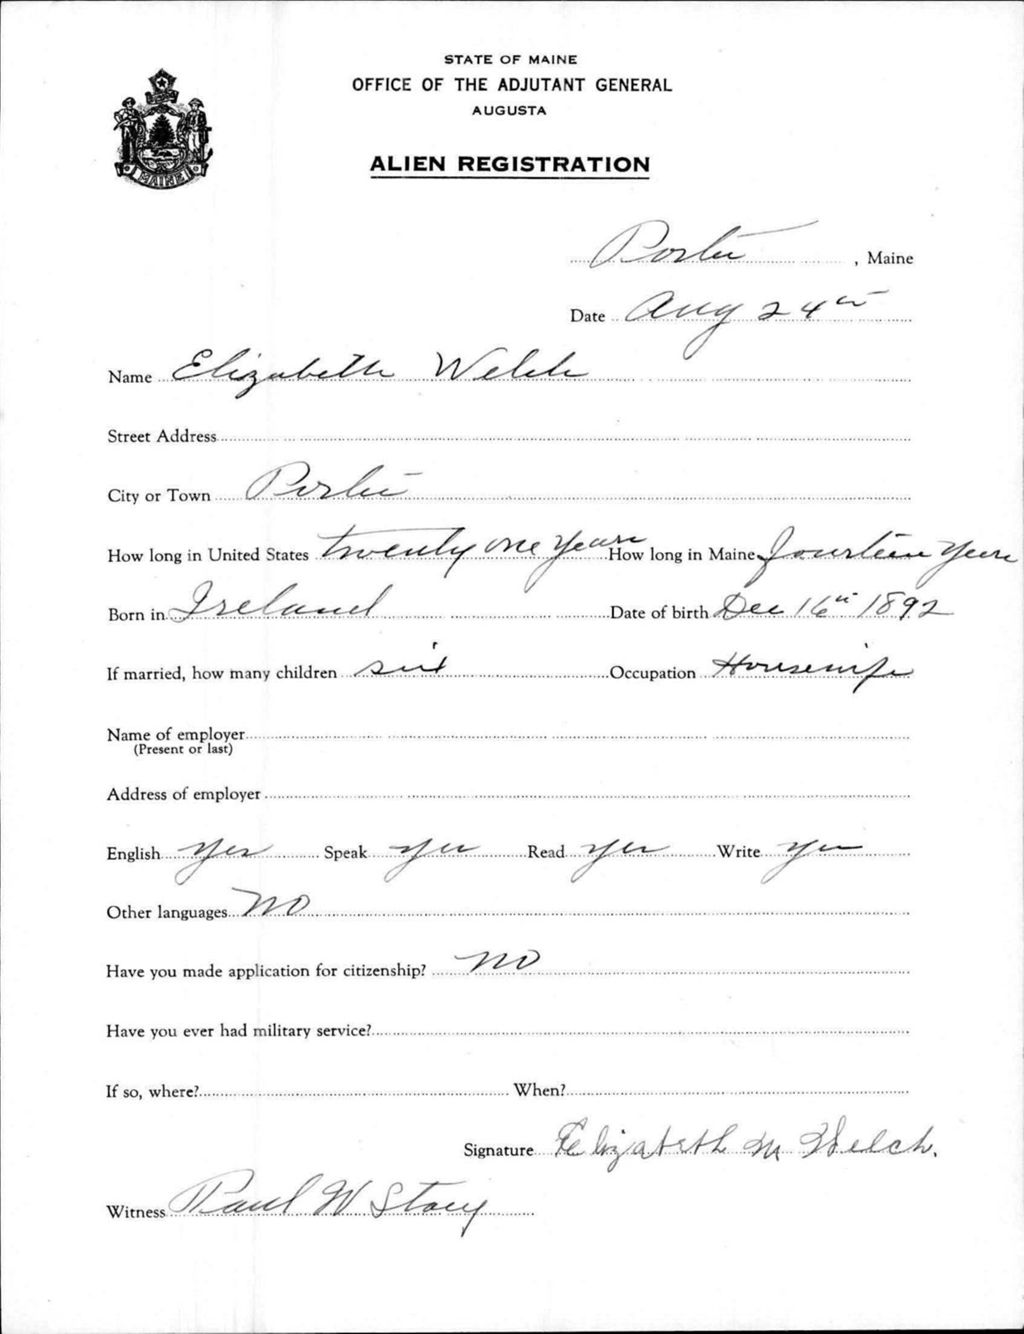 STATE OF MAINE
OFFICE OF THE ADJUTANT GENERAL
AUGUSTA
ALIEN REGISTRATION
MAINE
Porter, Maine
Date Aug 24th
Name Elizabeth Welch
Street Address
City or Town Porter
How long in United States twenty one Years How long in Maine fourteen Years
Born in Ireland Date of birth Dec 16th 1892
If married, how many children six Occupation Housewife
Name of employer
(Present or last)
Address of employer
English Yes Speak Yes Read Yes Write Yes
Other languages NO
Have you made application for citizenship? NO
Have you ever had military service?
If so, where? When?
Signature Elizabeth M Welch.
Witness Paul W Stacy